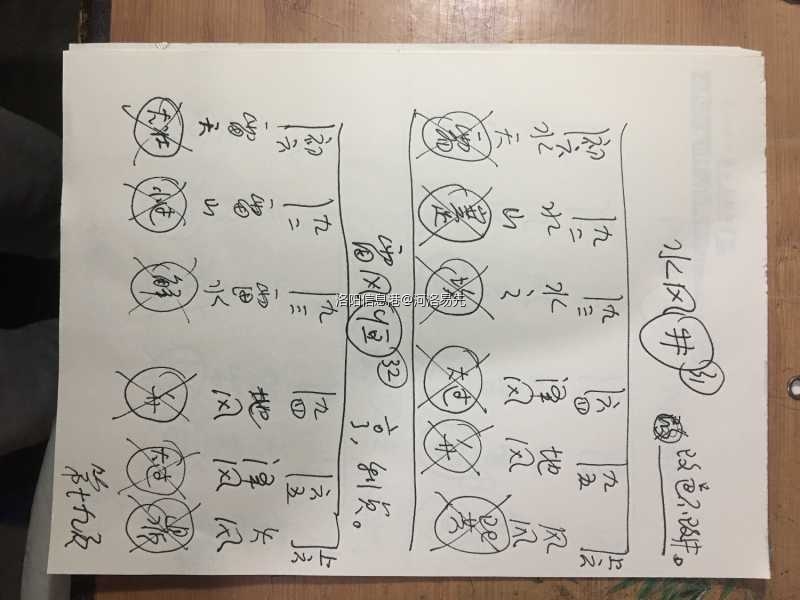 水风井 31 改邑不改井。
初六 九二 九三 六四 九五 上六
水 水 水 泽 地 风
天 山 氵 风 风 风
需 蹇 坎 大过 升 巽
雷风恒 32 亨,利贞。
初六 九二 九三 九四 六五 上六
雷 雷 雷 地 泽 火
天 山 水 风 风 风
大壮 小过 解 升 大过 鼎
第十九页
洛阳信息港@河洛易先